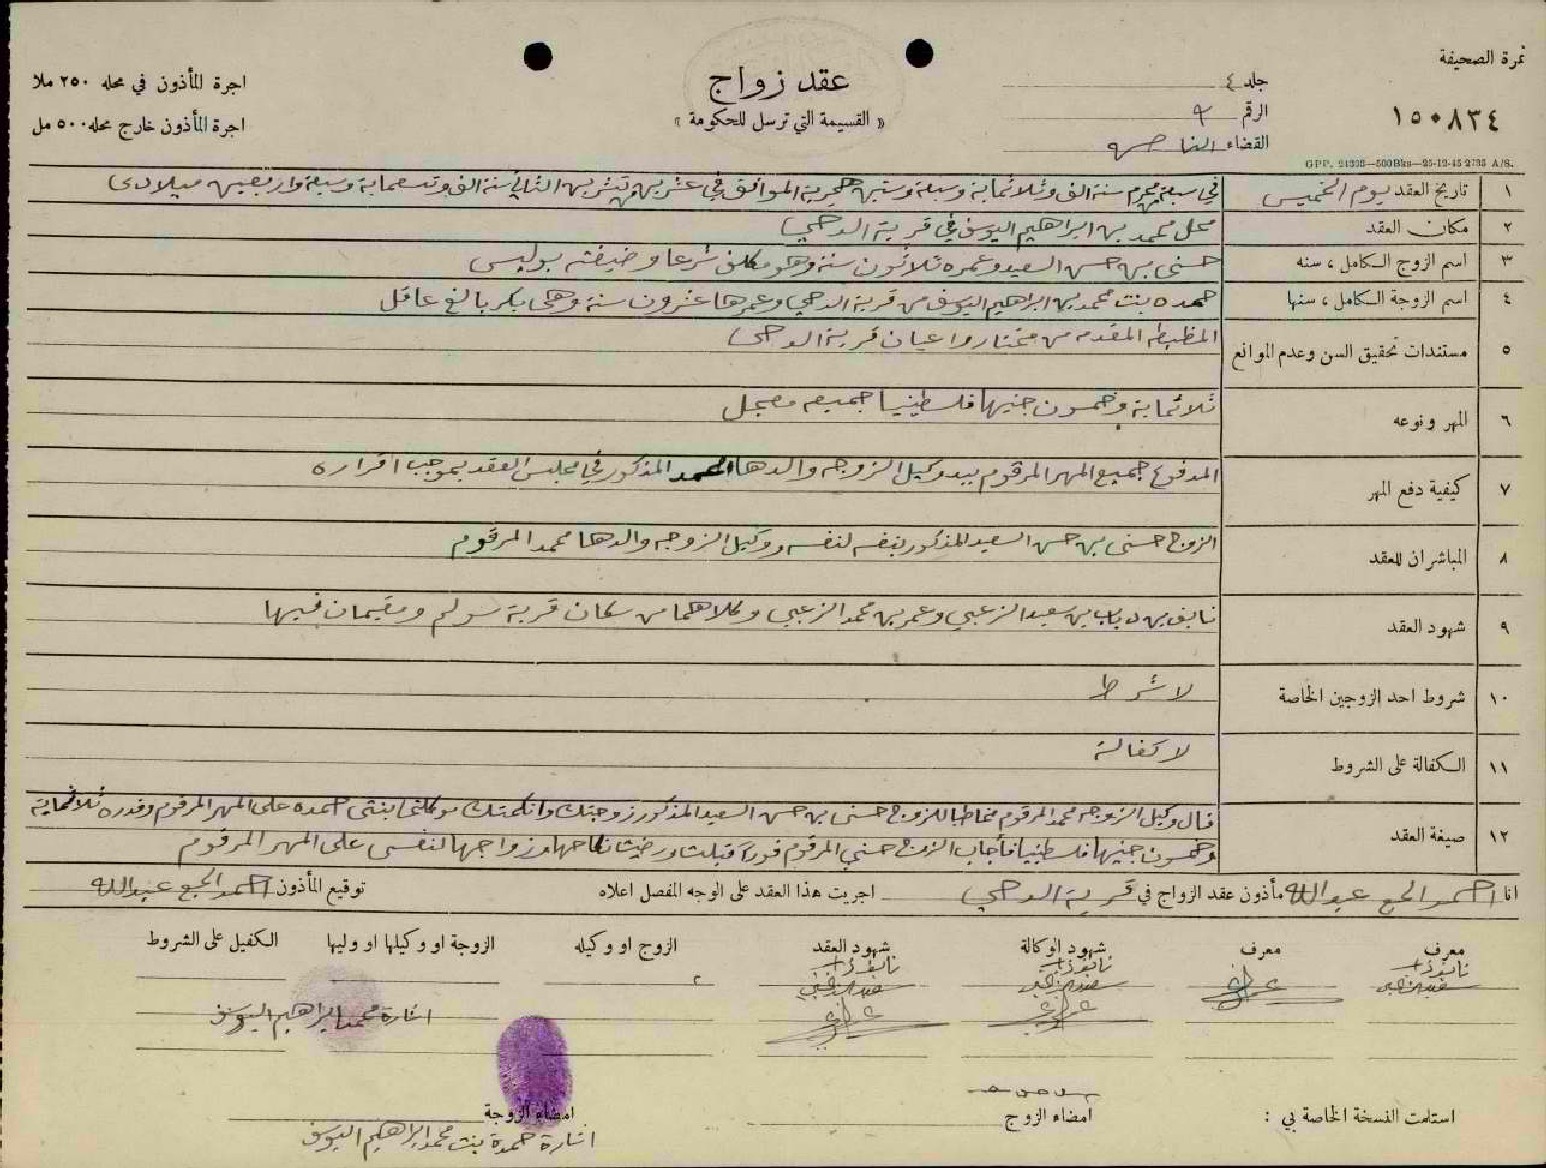 نمرة الصحيفة
١٥٠٨٣٤
GPP. 21335—500Bks—25-12-45 2735 A/S.
جلد ٤
الرقم ٩
القضاء الناصره
عقد زواج
« القسيمة التي ترسل للحكومة »
اجرة المأذون في محله ٢٥٠ ملا
اجرة المأذون خارج محله ٥٠٠ مل
١ تاريخ العقد يوم الخميس في سبعة محرم سنة الف وثلاثماية وسبعة وستين هجرية الموافق في عشرين من تشرين الثاني سنة الف وتسعماية وسبعة واربعين ميلادى
٢ مكان العقد محل محمد بن ابراهيم اليوسف في قرية الدحي
٣ اسم الزوج الكامل ، سنه حسنى بن حسن السعيد وعمره ثلاثون سنة وهو مكلف شرعا وضيفته بوليس
٤ اسم الزوجة الكامل ، سنها حمده بنت محمد بن ابراهيم اليوسف من قرية الدحي وعمرها عشرون سنة وهى بكر بالغ عاقل
٥ مستندات تحقيق السن وعدم الموانع المظبطه المقدمه من مختار واعيان قرية الدحى
٦ المهر ونوعه ثلاثماية وخمسون جنيها فلسطينيا جميعه معجل
٧ كيفية دفع المهر المدفوع جميع المهر المرقوم بيد وكيل الزوجه والدها محمد المذكور في مجلس العقد بموجب اقراره
٨ المباشران للعقد الزوج حسنى بن حسن السعيد المذكور بنفسه لنفسه ووكيل الزوجه والدها محمد المرقوم
٩ شهود العقد نايف بن دياب بن سعيد الزعبي وعمر بن محمد الزعبي وكلاهما من سكان قرية سولم ومقيمان فيها
١٠ شروط احد الزوجين الخاصة لا شرط
١١ الكفالة على الشروط لا كفالة
١٢ صيغة العقد قال وكيل الزوجه محمد المرقوم مخاطبا للزوج حسنى بن حسن السعيد المذكور زوجتك وانكحتك موكلتى ابنتى حمده على المهر المرقوم وقدره ثلاثماية
وخمسون جنيها فلسطينيا فأجاب الزوج حسني المرقوم فوراً قبلت ورضيت نكاحها وزواجها لنفسى على المهر المرقوم
انا احمد الحج عبدالله مأذون عقد الزواج في قرية الدحي اجريت هذا العقد على الوجه المفصل اعلاه توقيع المأذون احمد الحج عبدالله
معرف معرف شهود الوكالة شهود العقد الزوج او وكيله الزوجة او وكيلها او وليها الكفيل على الشروط
اشارة محمد ابراهيم اليوسف
استلمت النسخة الخاصة بي : امضاء الزوج امضاء الزوجة
اشارة حمدة بنت محمد ابراهيم اليوسف